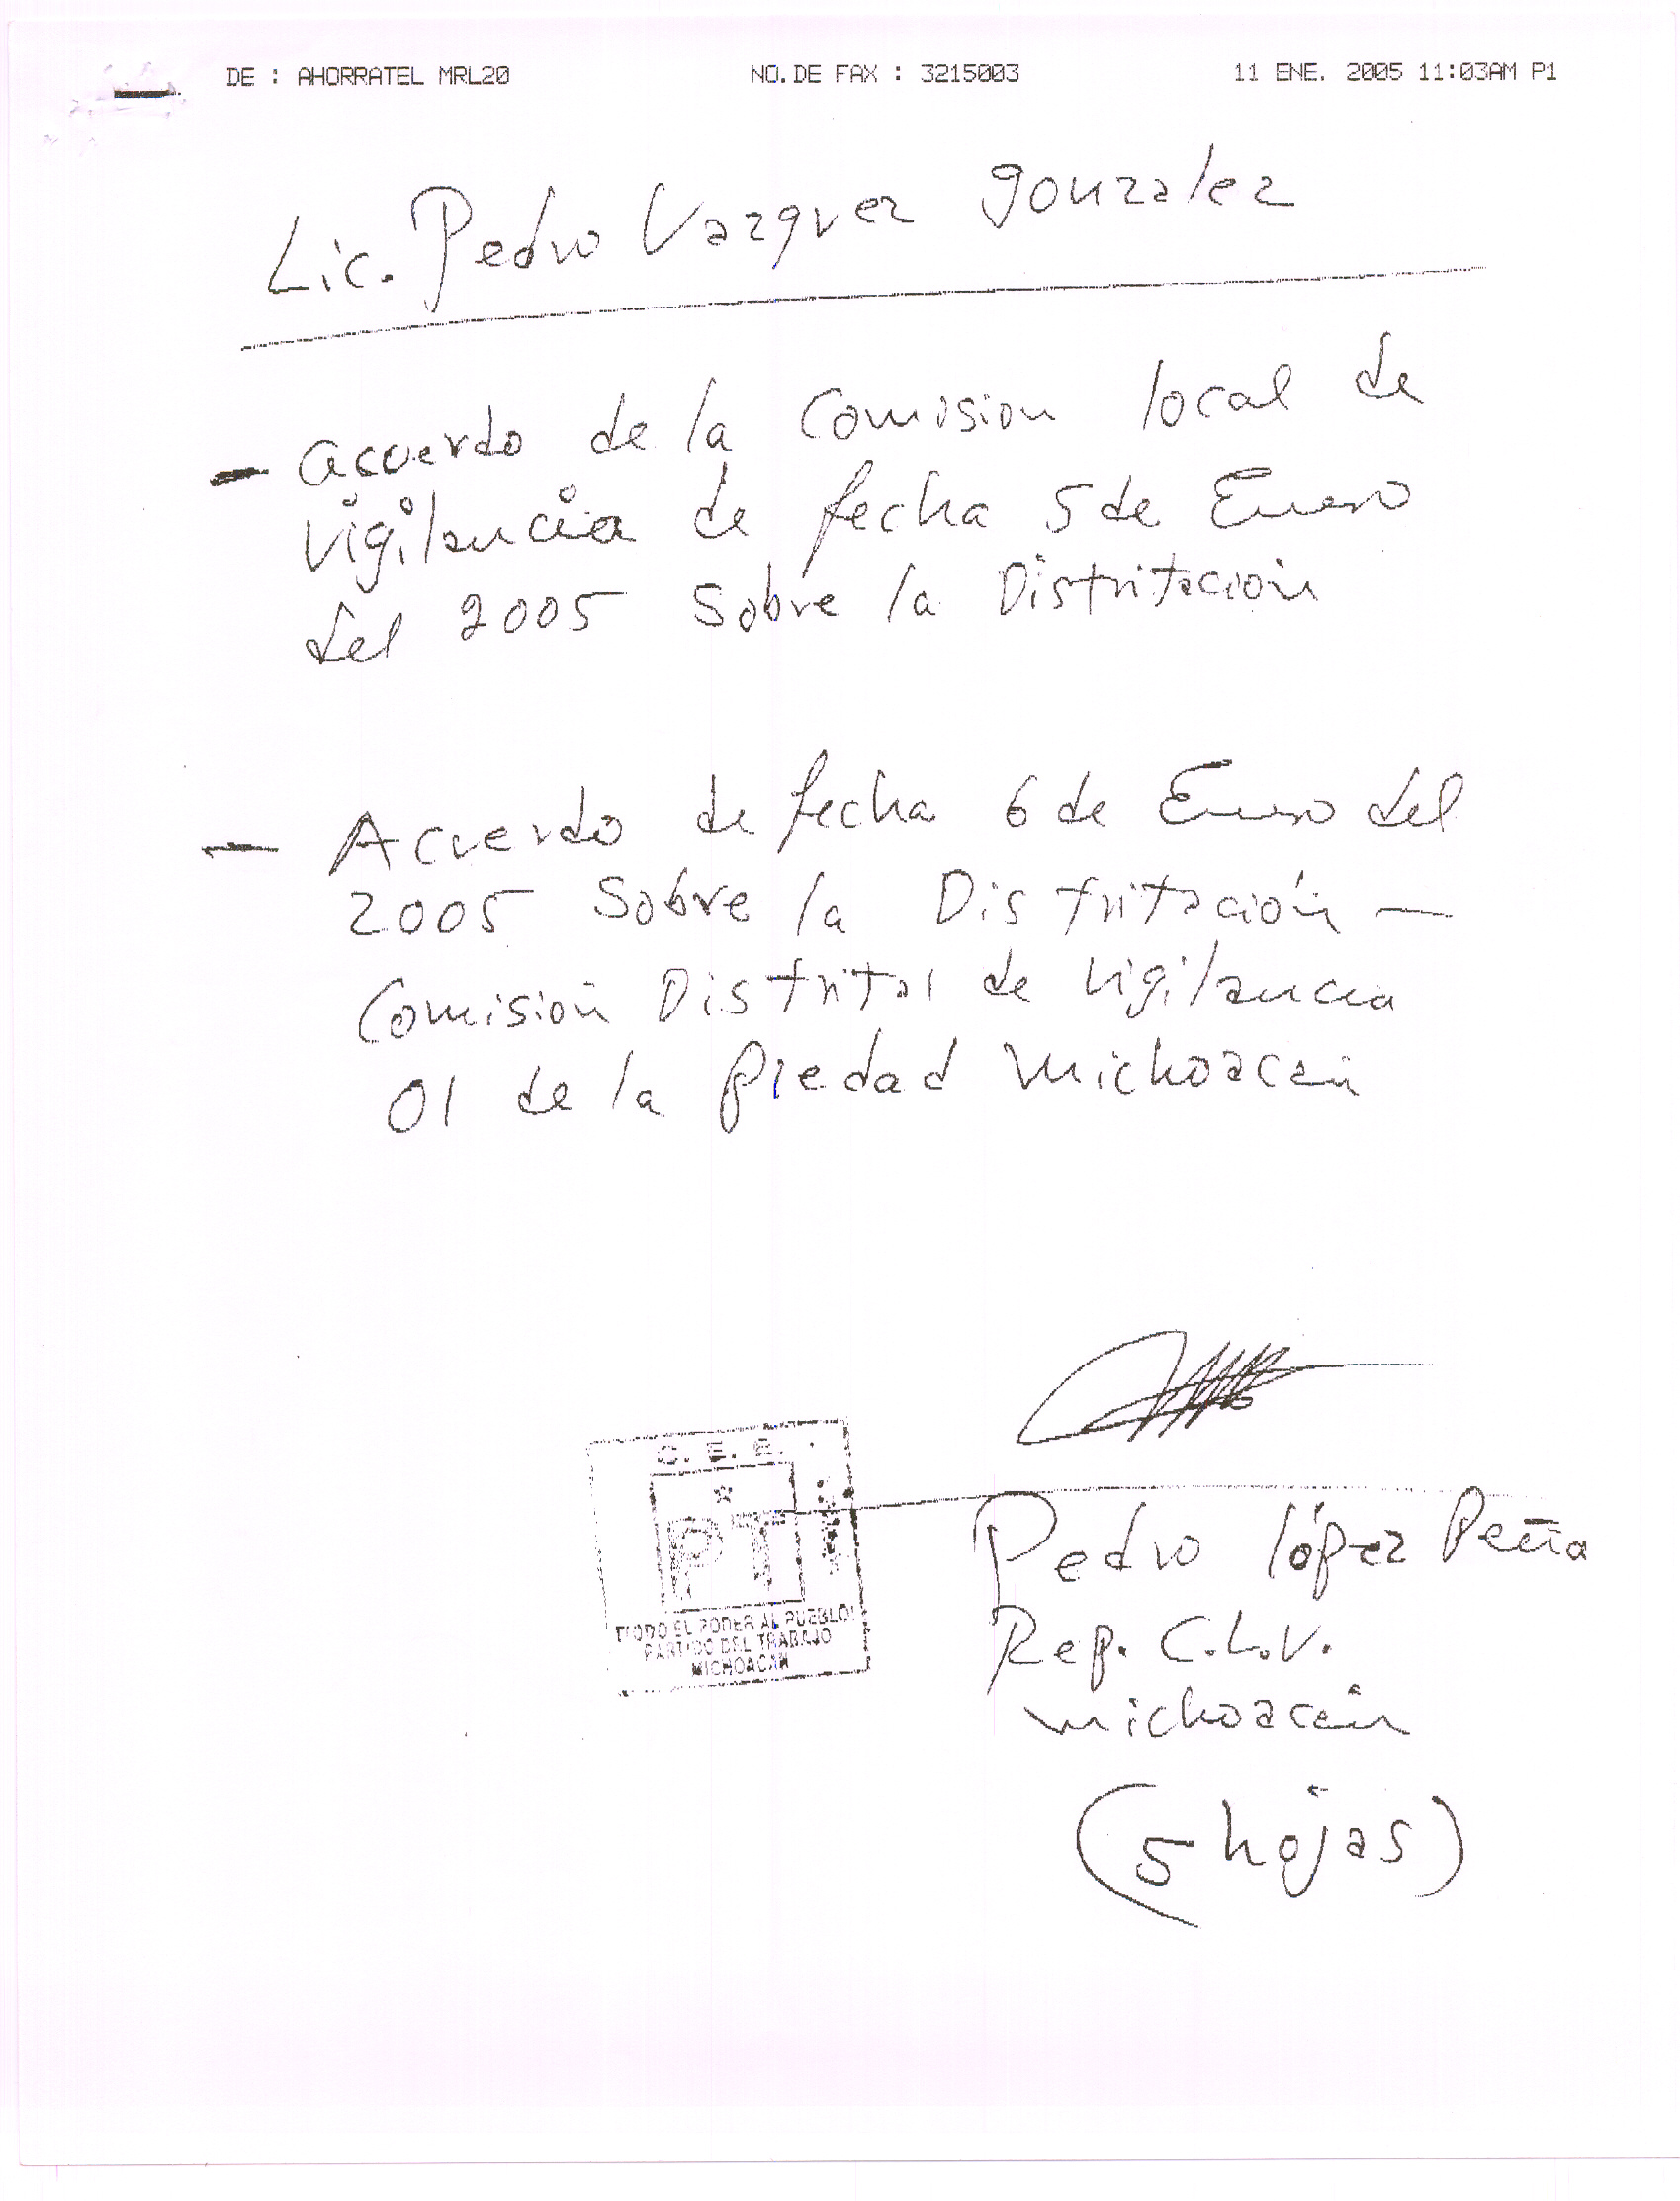 DE : AHORRATEL MRL20 NO. DE FAX : 3215003 11 ENE. 2005 11:03AM P1
Lic. Pedro Vazquez gonzalez
- acuerdo de la Comision local de
vigilancia de fecha 5 de Enero
del 2005 Sobre la Distritación
- Acuerdo de fecha 6 de Enero del
2005 Sobre la Distritación -
Comisión Distrital de vigilancia
01 de la Piedad Michoacán
C. E. E.
PT
TODO EL PODER AL PUEBLO!
PARTIDO DEL TRABAJO
MICHOACAN
Pedro López Peña
Rep. C.L.V.
Michoacán
(5 hojas)